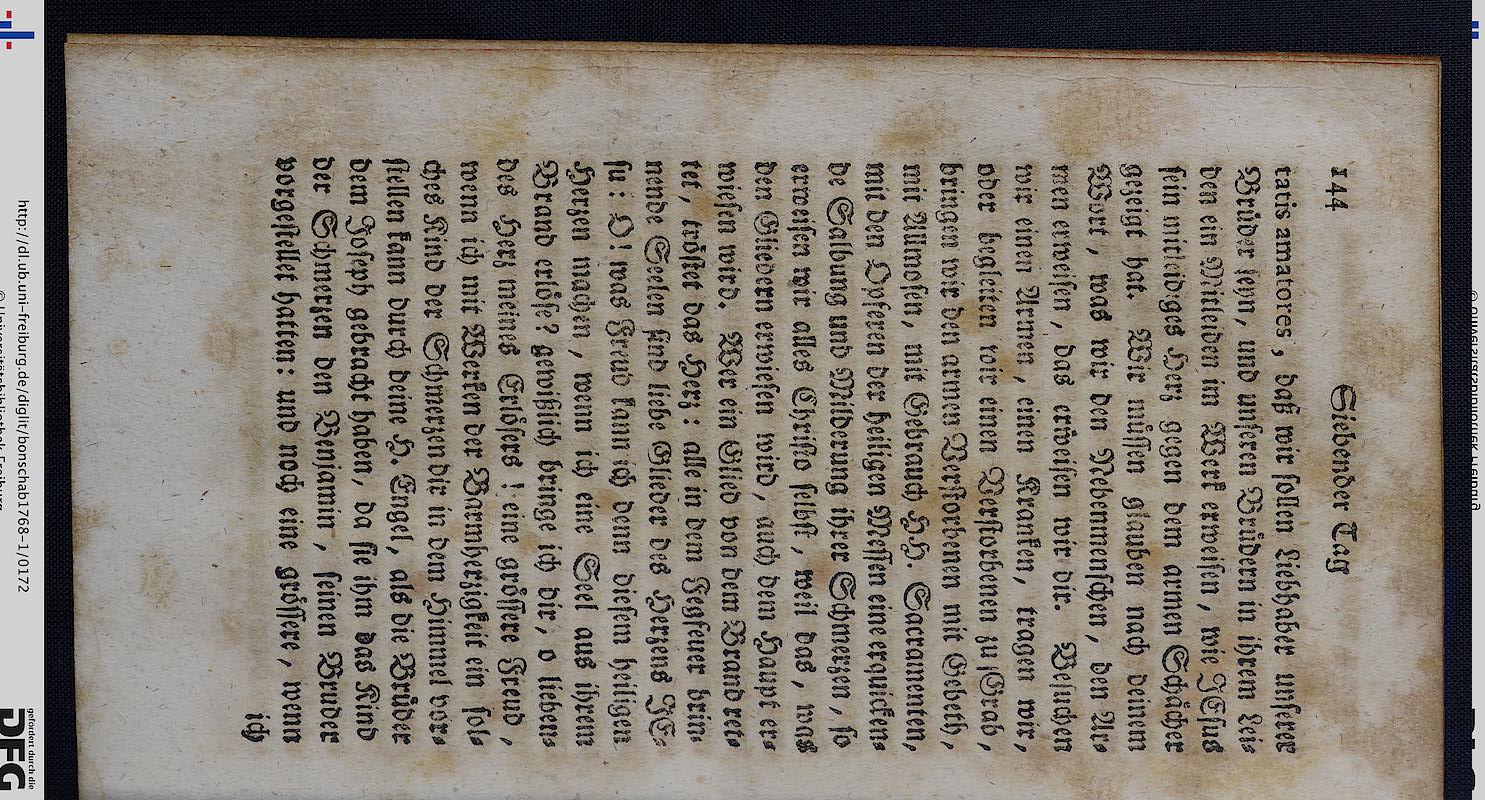 144 Siebender Tag
tatis amatores, daß wir sollen Liebhaber unserer
Brüder seyn, und unseren Brüdern in ihrem Lei⸗
den ein Mitleiden im Werk erweisen, wie JEsus
sein mitleidiges Herz gegen dem armen Schächer
gezeigt hat. Wir müssen glauben nach deinem
Wort, was wir den Nebenmenschen, den Ar⸗
men erweisen, das erweisen wir dir. Besuchen
wir einen Armen, einen Kranken, tragen wir,
oder begleiten wir einen Verstorbenen zu Grab,
bringen wir den armen Verstorbenen mit Gebeth,
mit Allmosen, mit Gebrauch HH. Sacramenten,
mit den Opferen der heiligen Messen eine erquicken⸗
de Salbung und Milderung ihrer Schmerzen, so
erweisen wir alles Christo selbst, weil das, was
den Gliedern erwiesen wird, auch dem Haupt er⸗
wiesen wird. Wer ein Glied von dem Brand ret⸗
tet, tröstet das Herz: alle in dem Fegfeuer brin⸗
nende Seelen sind liebe Glieder des Herzens JE⸗
su: O! was Freud kann ich denn diesem heiligen
Herzen machen, wenn ich eine Seel aus ihrem
Brand erlöse? gewißlich bringe ich dir, o lieben⸗
des Herz meines Erlösers! eine grössere Freud,
wenn ich mit Werken der Barmherzigkeit ein sol⸗
ches Kind der Schmerzen dir in dem Himmel vor⸗
stellen kann durch deine H. Engel, als die Brüder
dem Joseph gebracht haben, da sie ihm das Kind
der Schmerzen den Benjamin, seinen Bruder
vorgestellet hatten: und noch eine grössere, wenn
ich
http://dl.ub.uni-freiburg.de/diglit/bonschab1768-1/0172
© Universitätsbibliothek Freiburg
gefördert durch die
DFG